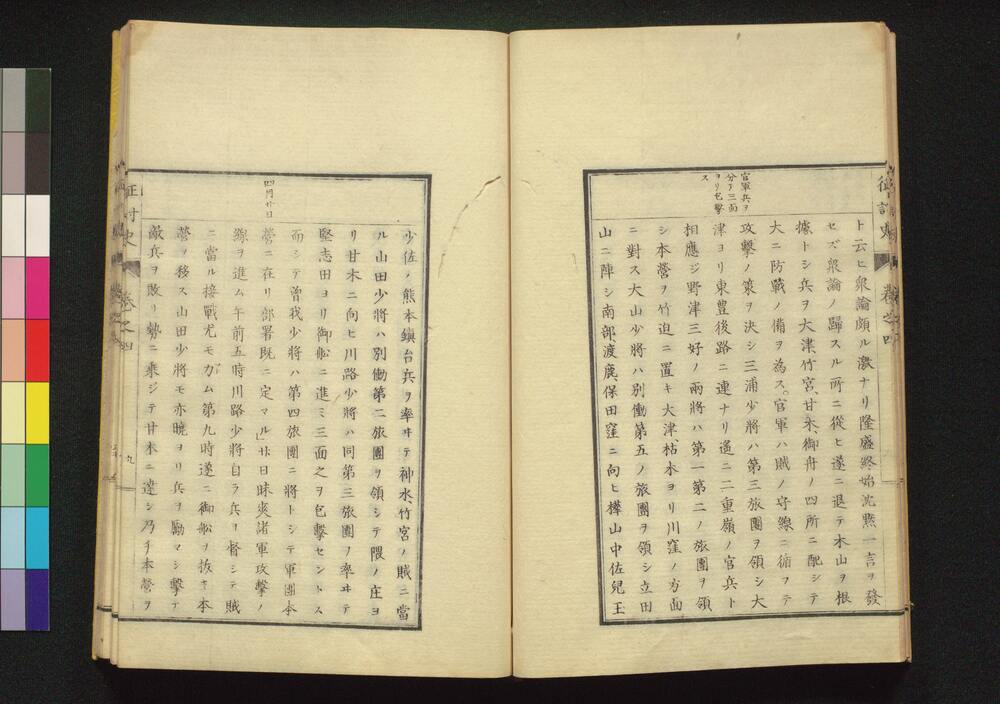 征討史
卷之四
官軍兵ヲ
分チ三面
ヨリ包撃
ス
ト云ヒ衆論頗ル激ナリ隆盛終始沈黙一言ヲ發
セズ衆論ノ歸スル所ニ從ヒ遂ニ退テ木山ヲ根
據トシ兵ヲ大津、竹宮、甘木、御舟ノ四所ニ配シテ
大ニ防戰ノ備ヲ為ス。官軍ハ賊ノ守線ニ循フテ
攻撃ノ策ヲ決シ三浦少將ハ第三旅團ヲ領シ大
津ヨリ東豊後路ニ連ナリ遙ニ二重嶺ノ官兵ト
相應ジ野津三好ノ兩將ハ第一第二ノ旅團ヲ領
シ本營ヲ竹迫ニ置キ大津、枯木ヨリ川窪ノ方面
ニ對ス大山少將ハ別働第五ノ旅團ヲ領シ立田
山ニ陣シ南部、渡鹿、保田窪ニ向ヒ樺山中佐兒玉
四月廿日
少佐ノ熊本鎭台兵ヲ率ヰテ神水、竹宮ノ賊ニ當
ル山田少將ハ別働第二旅團ヲ領シテ隈ノ庄ヨ
リ甘木ニ向ヒ川路少將ハ同第三旅團ノ率ヰテ
堅志田ヨリ御舩ニ進ミ三面之ヲ包撃セントス
而シテ曽我少將ハ第四旅團ニ將トシテ軍團本
營ニ在リ部署既ニ定マル」廿日昧爽諸軍攻撃ノ
線ヲ進ム午前五時川路少將自ラ兵ヲ督シテ賊
ニ當ル接戰尤モ力ム第九時遂ニ御舩ヲ抜キ本
營ヲ移ス山田少將モ亦曉ヨリ兵ヲ勵マシ擊テ
敵兵ヲ敗リ勢ニ乘ジテ甘木ニ達シ乃チ本營ヲ
征討史
卷之四
九